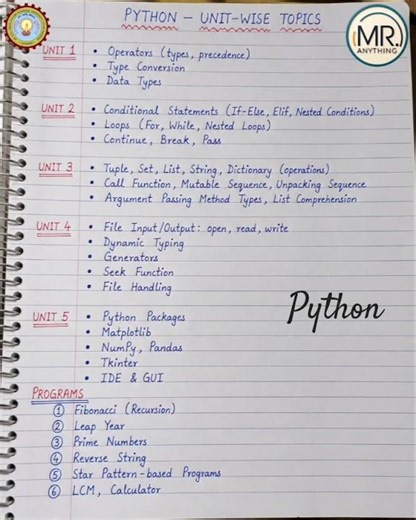 PYTHON – UNIT-WISE TOPICS
MR.
ANYTHING
UNIT 1
• Operators (types, precedence)
• Type Conversion
• Data Types
UNIT 2
• Conditional Statements (If-Else, Elif, Nested Conditions)
• Loops (For, While, Nested Loops)
• Continue, Break, Pass
UNIT 3
• Tuple, Set, List, String, Dictionary (operations)
• Call Function, Mutable Sequence, Unpacking Sequence
• Argument Passing Method Types, List Comprehension
UNIT 4
• File Input/Output: open, read, write
• Dynamic Typing
• Generators
• Seek Function
• File Handling
Python
UNIT 5
• Python Packages
• Matplotlib
• NumPy, Pandas
• Tkinter
• IDE & GUI
PROGRAMS
① Fibonacci (Recursion)
② Leap Year
③ Prime Numbers
④ Reverse String
⑤ Star Pattern-based Programs
⑥ LCM, Calculator